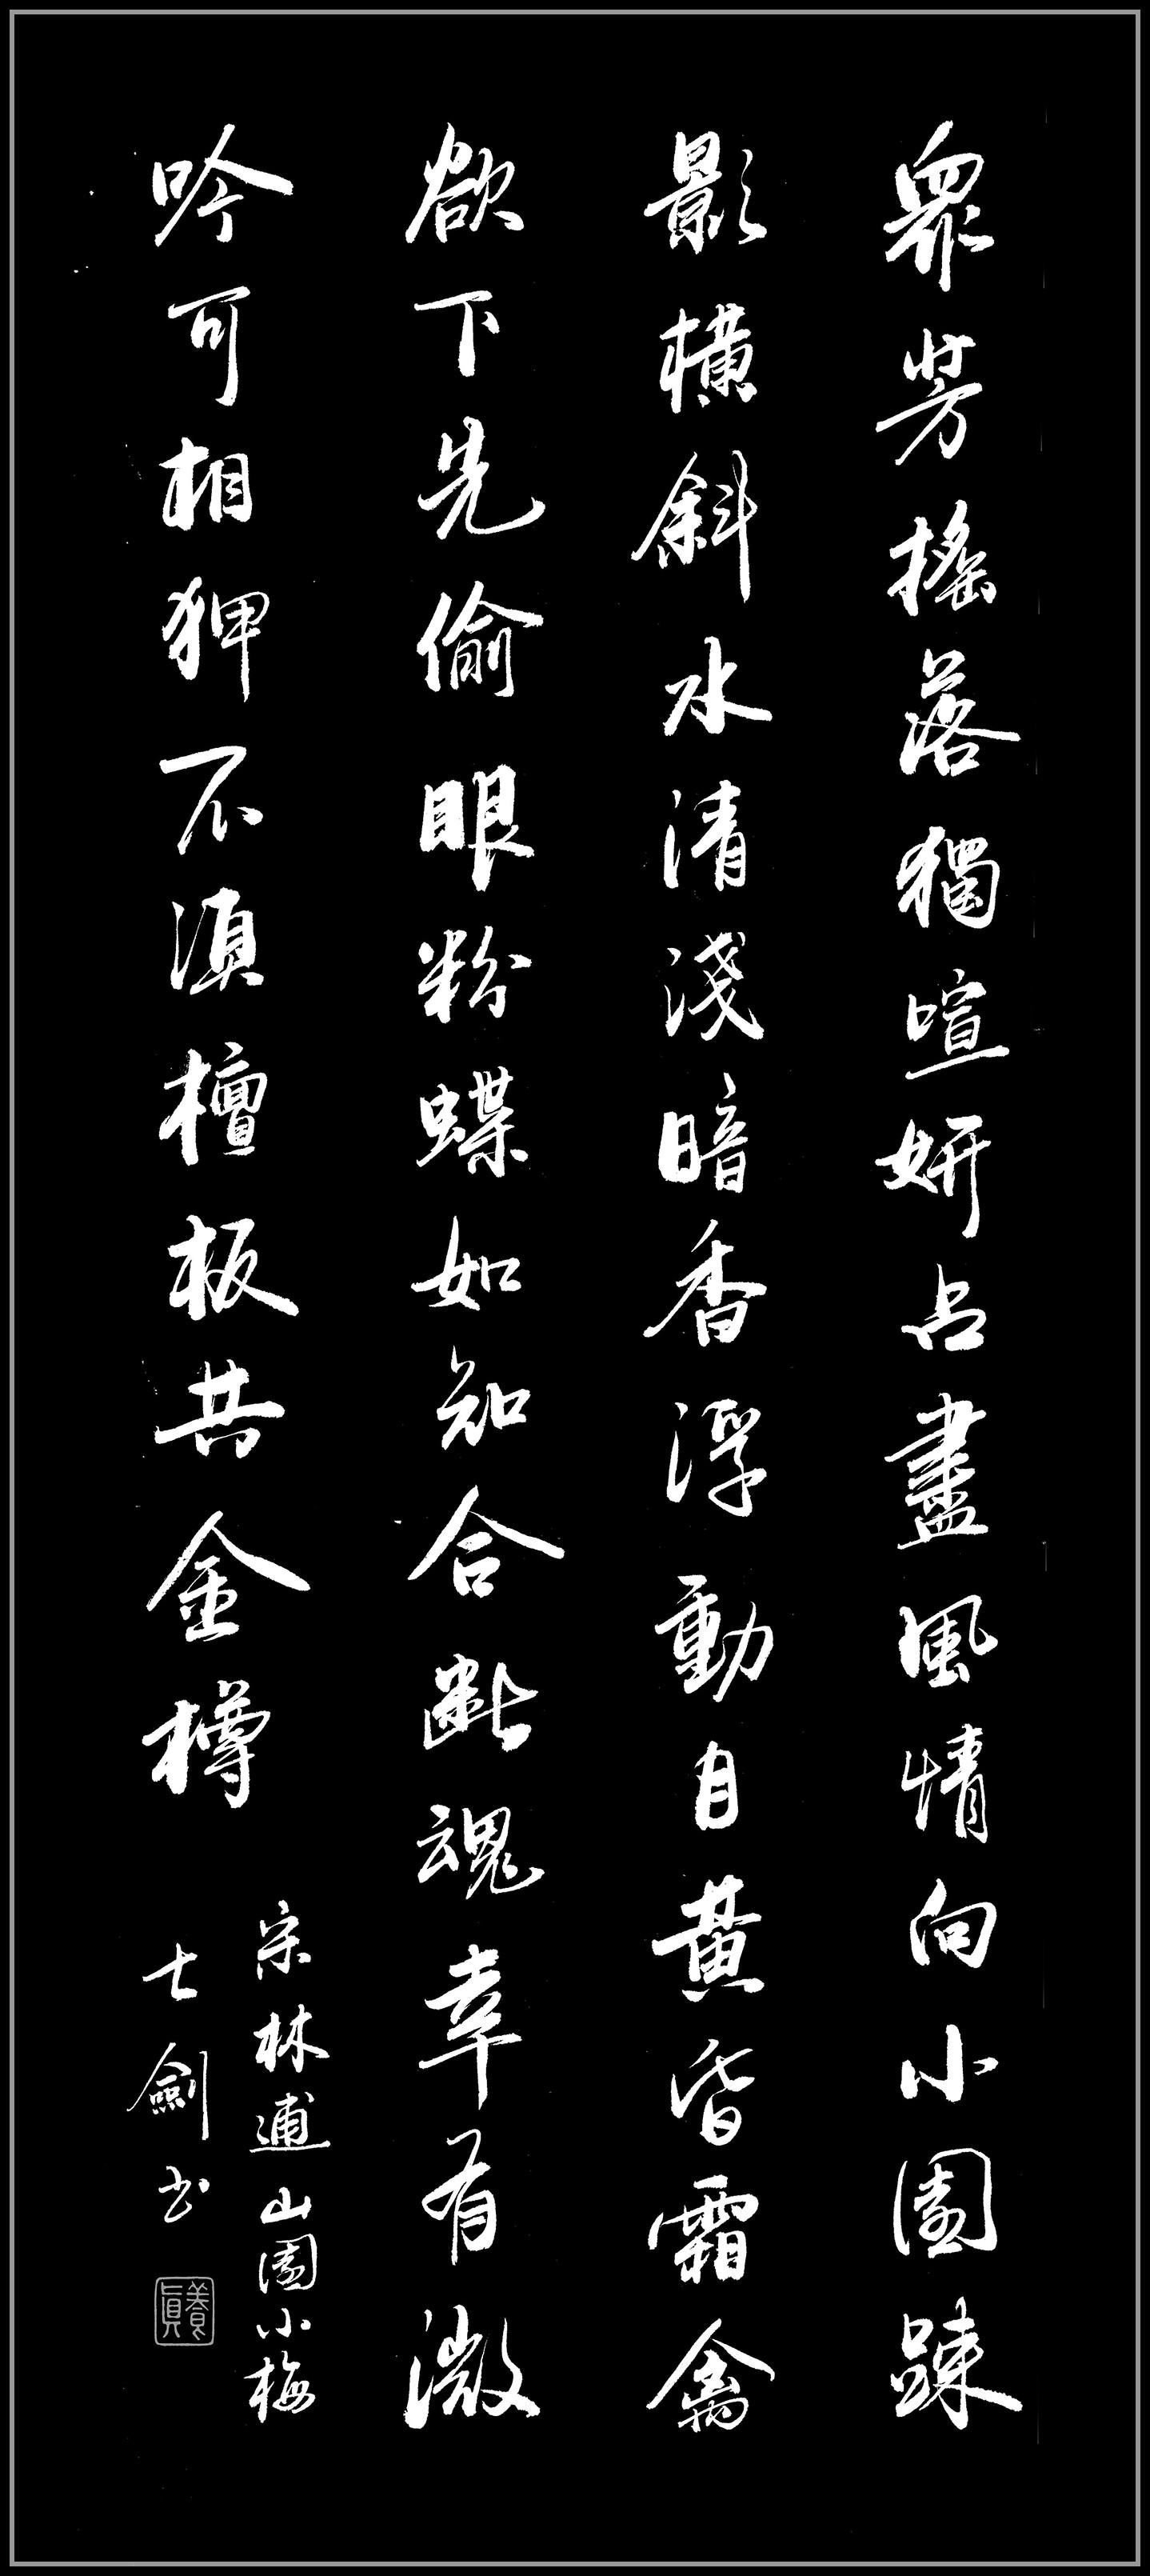 眾芳搖落獨喧妍占盡風情向小園踈
影橫斜水清淺暗香浮動月黃昏霜禽
欲下先偷眼粉蝶如知合斷魂幸有微
吟可相狎不須檀板共金樽
宋林逋山園小梅
七劍书
養真